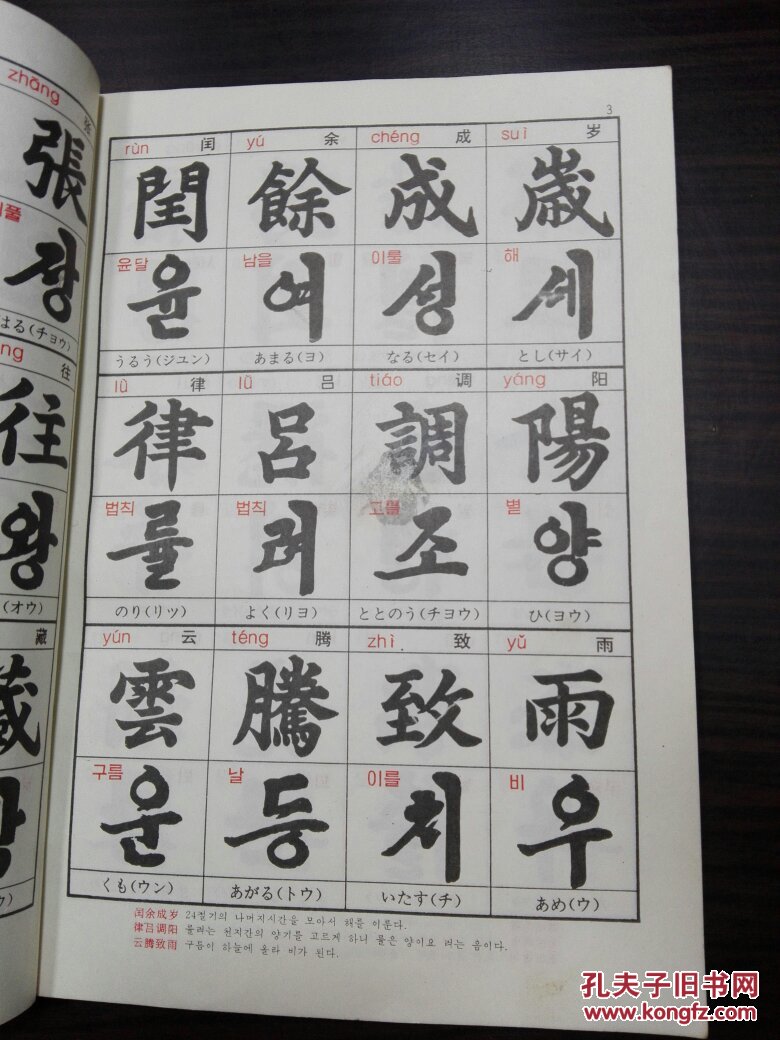 zhāng
張
장
はる(チョウ)
往
往
왕
(オウ)
藏
藏
3
rùn 闰 yú 余 chéng 成 suì 岁
閏 餘 成 歲
윤달 남을 이룰 해
윤 여 성 세
うるう(ジユン) あまる(ヨ) なる(セイ) とし(サイ)
lǜ 律 lǚ 吕 tiáo 调 yáng 阳
律 呂 調 陽
법칙 법칙 고를 볕
률 려 조 양
のり(リツ) よく(リヨ) ととのう(チヨウ) ひ(ヨウ)
yún 云 téng 腾 zhì 致 yǔ 雨
雲 騰 致 雨
구름 날 이를 비
운 등 치 우
くも(ウン) あがる(トウ) いたす(チ) あめ(ウ)
闰余成岁 24절기의 나머지시간을 모아서 해를 이룬다.
律吕调阳 률려는 천지간의 양기를 고르게 하니 률은 양이요 려는 음이다.
云腾致雨 구름이 하늘에 올라 비가 된다.
孔夫子旧书网
www.kongfz.com